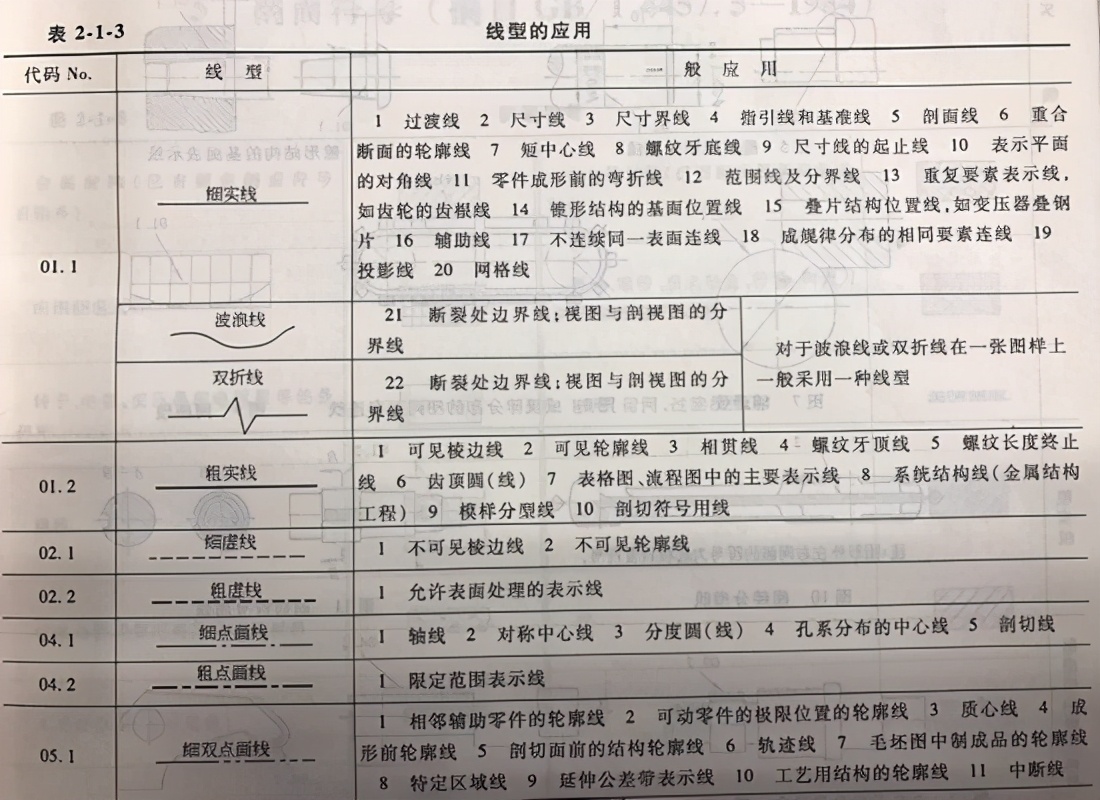 表 2-1-3 线型的应用
代码 No. 线 型 一 般 应 用
01.1
细实线
1 过渡线 2 尺寸线 3 尺寸界线 4 指引线和基准线 5 剖面线 6 重合
断面的轮廓线 7 短中心线 8 螺纹牙底线 9 尺寸线的起止线 10 表示平面
的对角线 11 零件成形前的弯折线 12 范围线及分界线 13 重复要素表示线，
如齿轮的齿根线 14 锥形结构的基面位置线 15 叠片结构位置线，如变压器叠钢
片 16 辅助线 17 不连续同一表面连线 18 成规律分布的相同要素连线 19
投影线 20 网格线
波浪线
21 断裂处边界线；视图与剖视图的分
界线
双折线
22 断裂处边界线；视图与剖视图的分
界线
对于波浪线或双折线在一张图样上
一般采用一种线型
01.2
粗实线
1 可见棱边线 2 可见轮廓线 3 相贯线 4 螺纹牙顶线 5 螺纹长度终止
线 6 齿顶圆(线) 7 表格图、流程图中的主要表示线 8 系统结构线(金属结构
工程) 9 模样分型线 10 剖切符号用线
02.1
细虚线
1 不可见棱边线 2 不可见轮廓线
02.2
粗虚线
1 允许表面处理的表示线
04.1
细点画线
1 轴线 2 对称中心线 3 分度圆(线) 4 孔系分布的中心线 5 剖切线
04.2
粗点画线
1 限定范围表示线
05.1
细双点画线
1 相邻辅助零件的轮廓线 2 可动零件的极限位置的轮廓线 3 质心线 4 成
形前轮廓线 5 剖切面前的结构轮廓线 6 轨迹线 7 毛坯图中制成品的轮廓线
8 特定区域线 9 延伸公差带表示线 10 工艺用结构的轮廓线 11 中断线